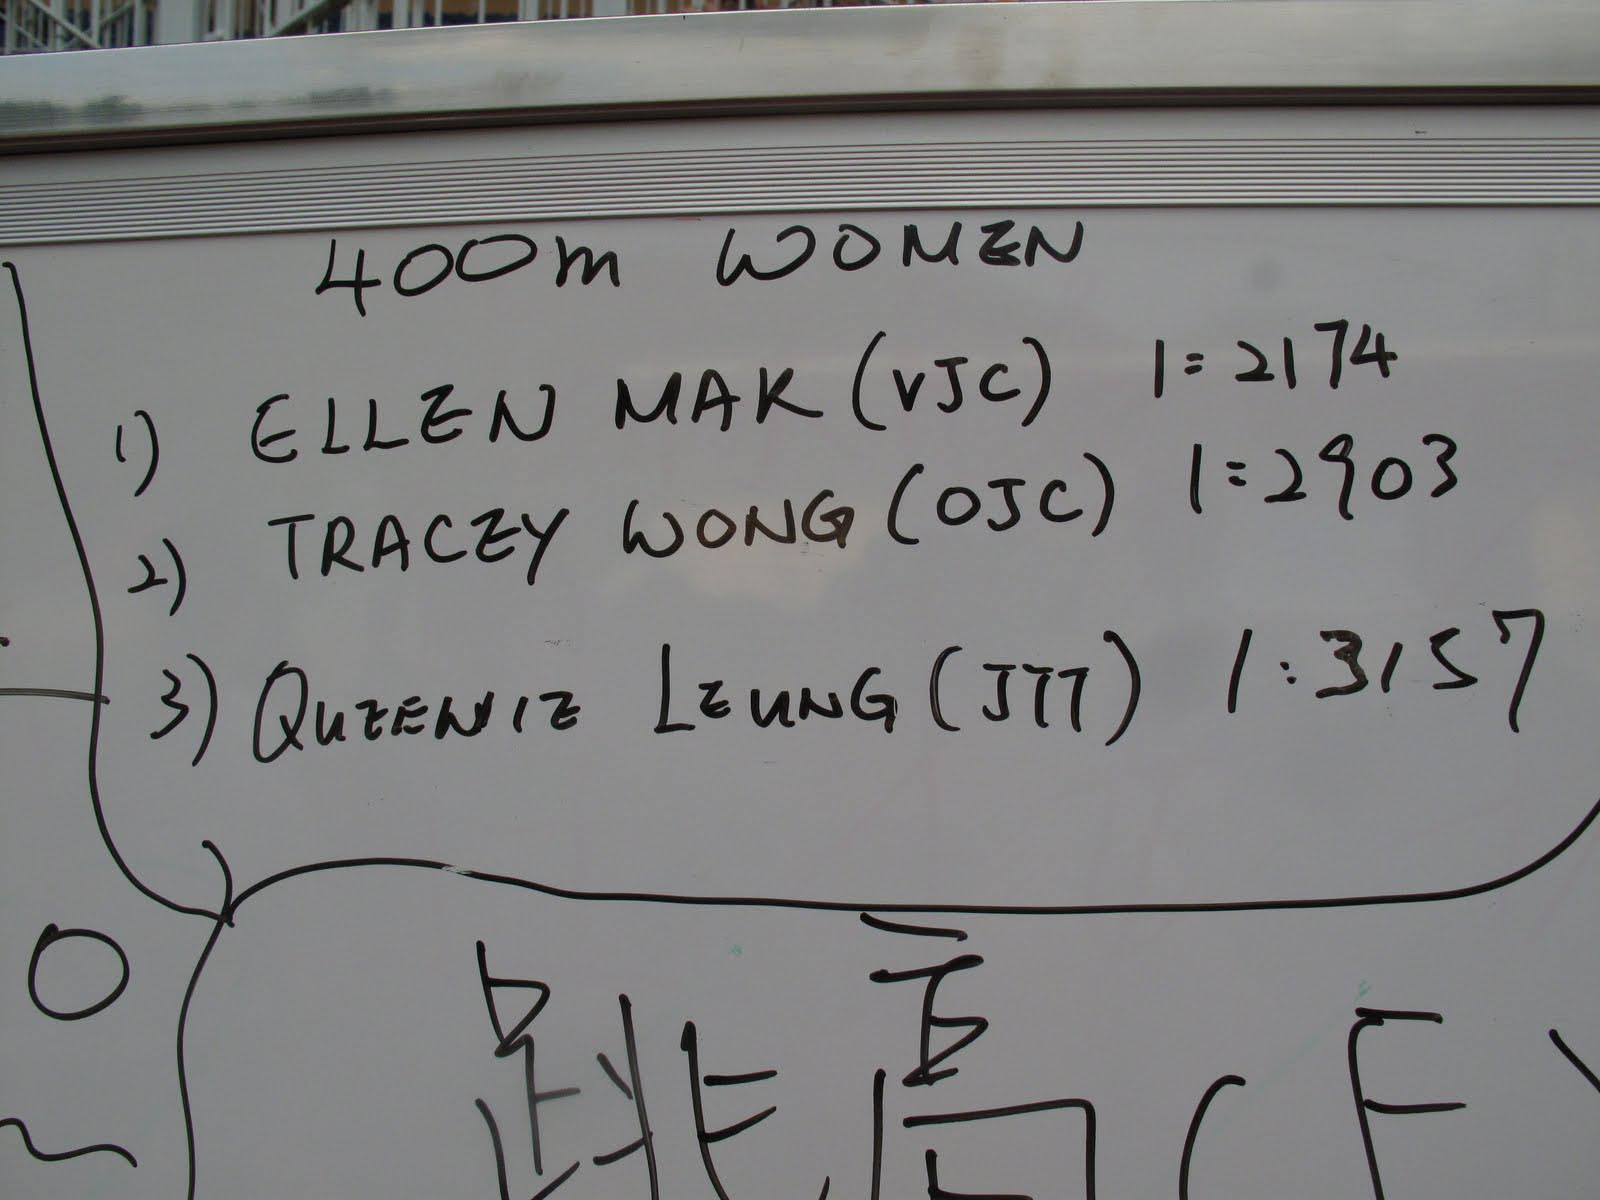 400m WOMEN
1) ELLEN MAK (VJC) 1:2174
2) TRACEY WONG (OJC) 1:2903
3) QUEENIE LEUNG (JTT) 1:3157
跳高 (F